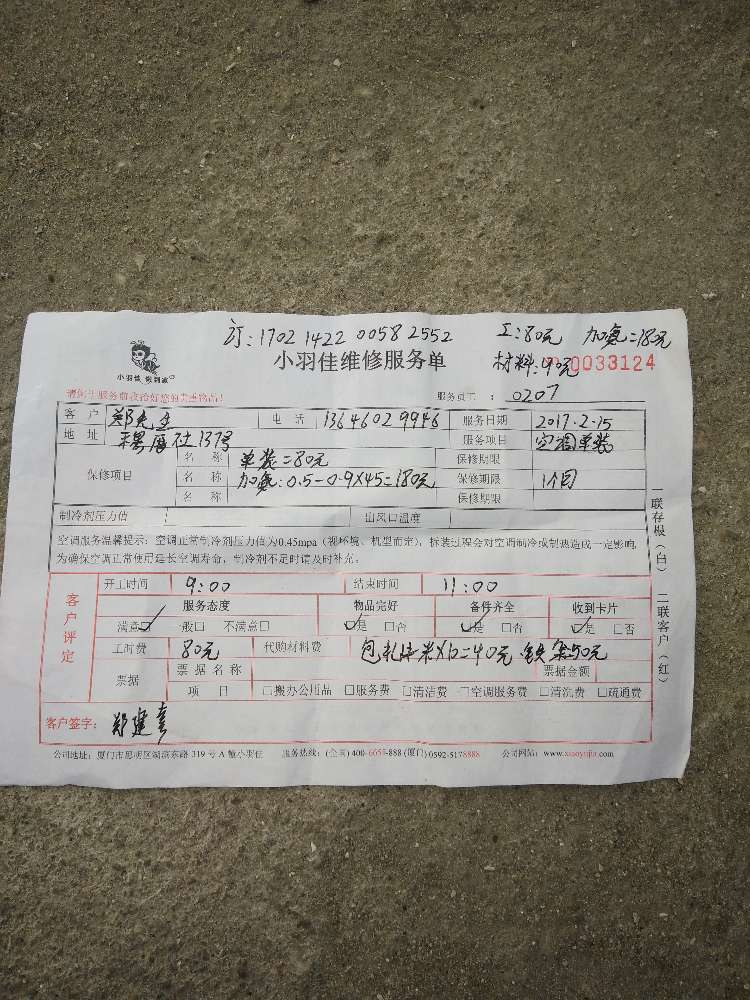 订:1702 1422 0058 2552 工:80元 加氨=180元
小羽佳维修服务单 材料:90元 0033124
小羽佳
服务员工 : 0207
客 户 郑先生 电 话 13646029946 服务日期 2017-2-15
地 址 社137号 服务项目 空调单装
保修项目 名 称 单装=80元 保修期限
名 称 加氨:0.5-0.9X45=180元 保修期限 1个月
名 称 保修期限
制冷剂压力值 出风口温度
空调服务温馨提示:空调正常制冷剂压力值为0.45mpa(视环境、机型而定),拆装过程会对空调制冷或制热造成一定影响,
为确保空调正常使用延长空调寿命,制冷剂不足时请及时补充。
客户评定
开工时间 9:00 结束时间 11:00
服务态度 物品完好 备件齐全 收到卡片
满意☑ 一般□ 不满意□ ☑是 □否 ☑是 □否 ☑是 □否
工时费 80元 代购材料费 包扎 米X10=40元 铁架50元
票据 票据名称 票据金额
项 目 □搬办公用品 □服务费 □清洁费 □空调服务费 □清洗费 □疏通费
客户签字: 郑建
公司地址:厦门市思明区湖滨东路 319 号 A 幢小羽佳 服务热线:(全国)400-6059-888 (厦门)0592-5178888 公司网站:www.xiaoyujia.com
一联存根(白) 二联客户(红)